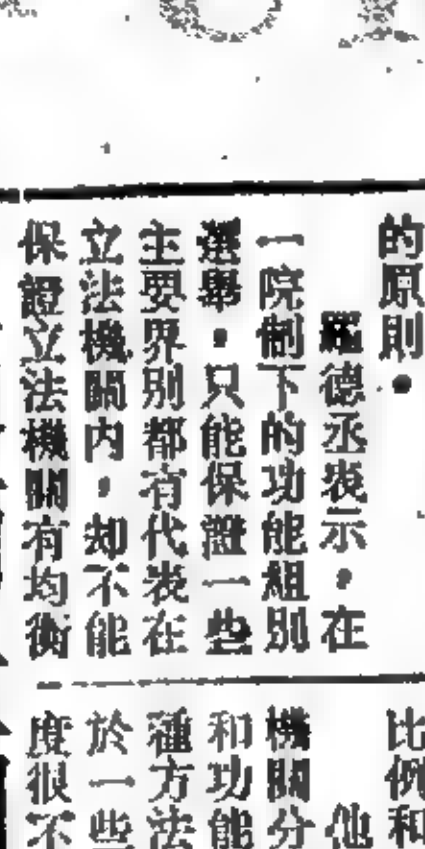 的原則。
羅德丞表示，在
一院制下的功能組別
選舉，只能保證一些
主要界別都有代表在
立法機關內，却不能
保證立法機關有均衡
比例和
他
機關分
和功能
種方法
於一些
度很不